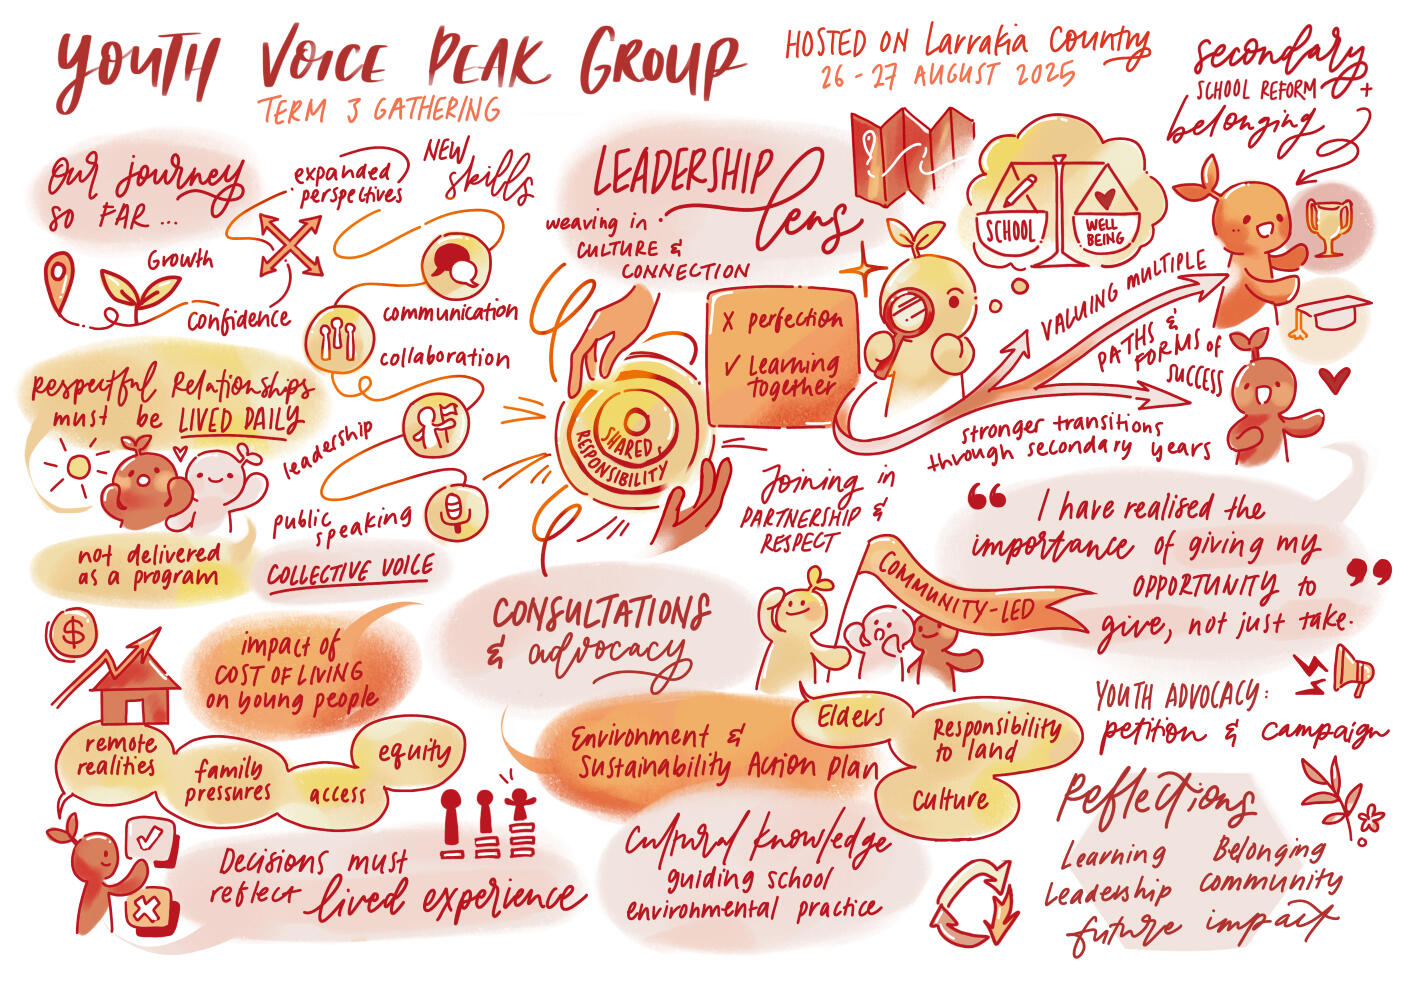 YOUTH VOICE PEAK GROUP
TERM 3 GATHERING
HOSTED ON Larrakia Country
26-27 AUGUST 2025
secondary
SCHOOL REFORM +
belonging
Our journey
SO FAR ...
Growth
Confidence
expanded
perspectives
NEW
skills
communication
collaboration
leadership
public
speaking
COLLECTIVE VOICE
respectful Relationships
must be LIVED DAILY
not delivered
as a program
LEADERSHIP
lens
weaving in
CULTURE &
CONNECTION
SHARED
RESPONSIBILITY
X perfection
✓ Learning
together
Joining in
PARTNERSHIP &
RESPECT
SCHOOL
WELL
BEING
VALUING MULTIPLE
PATHS &
FORMS of
SUCCESS
stronger transitions
through secondary years
“ I have realised the
importance of giving my
OPPORTUNITY to
give, not just take. ”
COMMUNITY-LED
$
impact of
COST OF LIVING
on young people
remote
realities
family
pressures
access
equity
Decisions must
reflect lived experience
CONSULTATIONS
& advocacy
Environment &
Sustainability Action Plan
Elders
Responsibility
to land
Culture
Cultural knowledge
guiding school
environmental practice
YOUTH ADVOCACY:
petition & campaign
Reflections
Learning
Leadership
Belonging
community
future impact